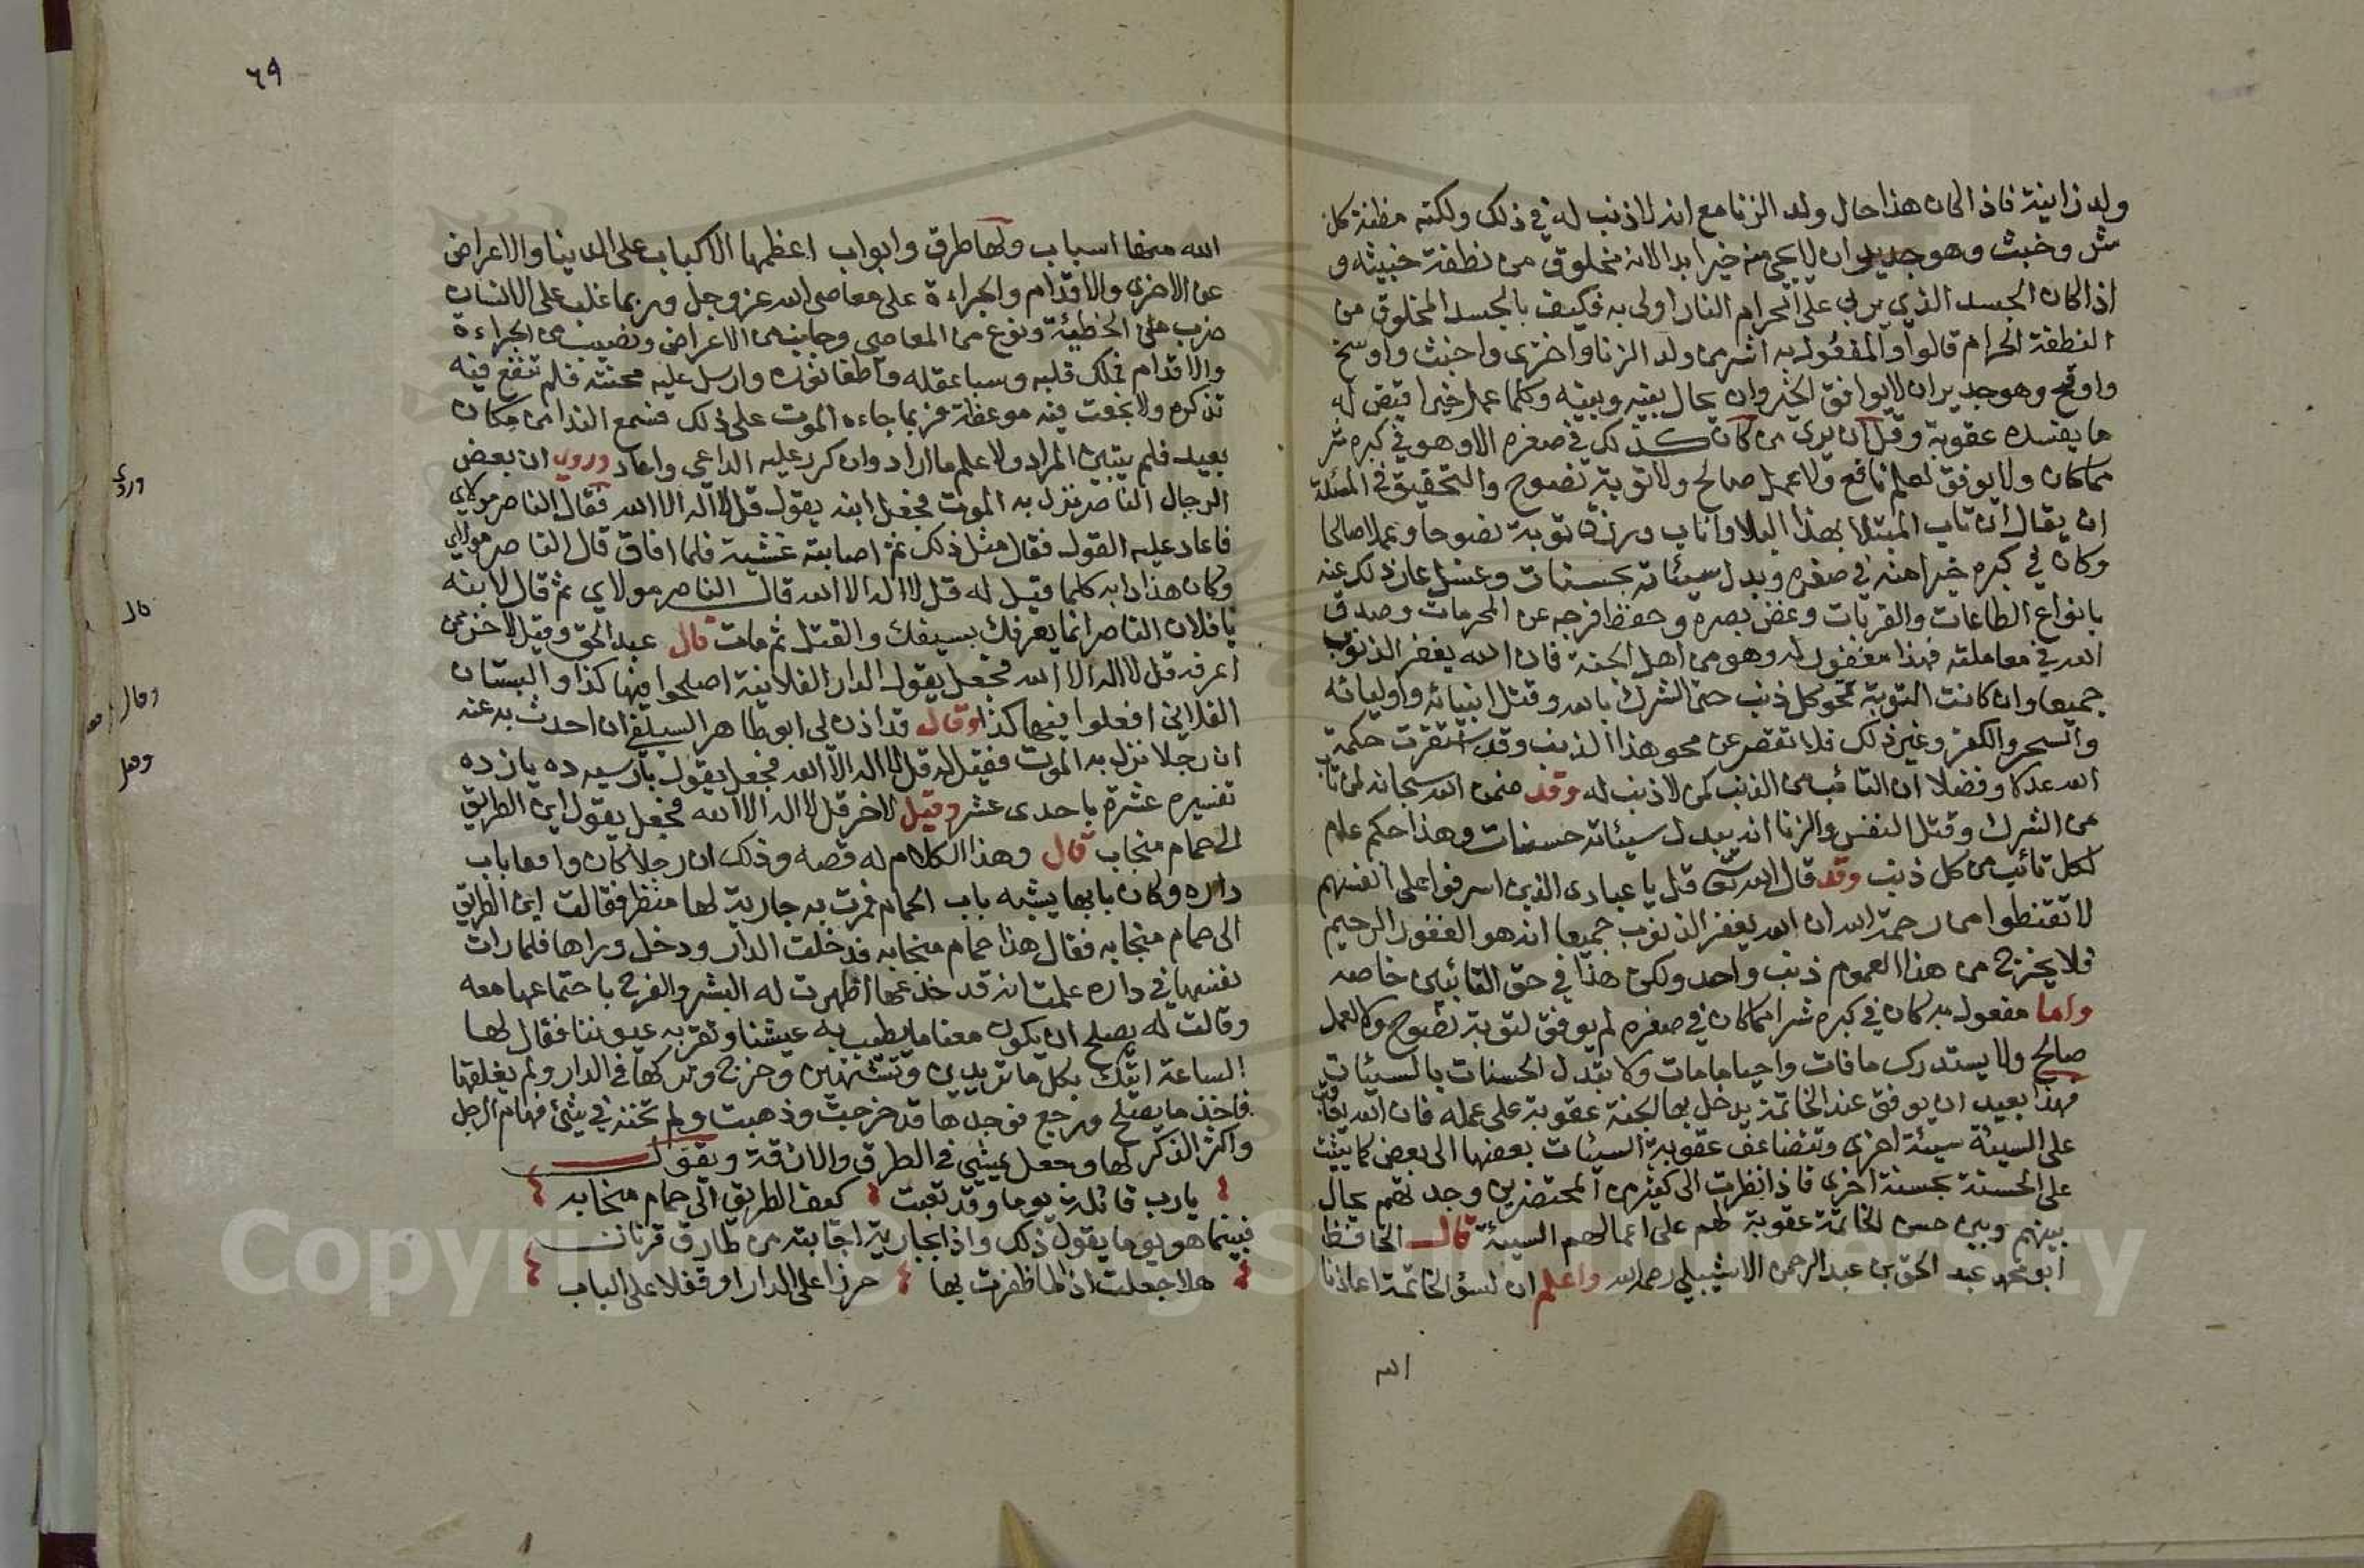 ولد زانية فاذا كان هذا حال ولد الزنا مع انه لا ذنب له في ذلك ولكنه مظنة كل
شر وخبث وهو جدير ان لا يجي منه خير ابدا لانه مخلوق من نطفة خبيثه و
اذا كان الجسد الذي يربى على الحرام النار اولى به فكيف بالجسد المخلوق من
النطفة الحرام قالوا والمفعول به اشر من ولد الزنا واخزى واخبث واوسخ
واوقح وهو جدير ان لا يوافق الخير وان يحال بينه وبينه وكلما عمل خيرا قيض له
ما يفسده عقوبة وقل ان يرى من كان كذلك في صغره الا وهو في كبره شر
مما كان ولا يوفق لعلم نافع ولا عمل صالح ولا توبة نصوح والتحقيق في المسئلة
ان يقال ان تاب المبتلا بهذا البلا واناب ورزق توبة نصوحا وعملا صالحا
وكان في كبره خيرا منه في صغره وبدل سيئاته بحسنات وغسل عار ذلك عنه
بانواع الطاعات والقربات وغض بصره وحفظ فرجه عن المحرمات وصدق
الله في معاملته فهذا مغفور له وهو من اهل الجنة فان الله يغفر الذنوب
جميعا وان كانت التوبة تمحو كل ذنب حتى الشرك بالله وقتل انبيائه واوليائه
والسحر والكفر وغير ذلك فلا تقصر عن محو هذا الذنب وقد استقرت حكمة
الله عدلا وفضلا ان التائب من الذنب كمن لا ذنب له وقد ضمن الله سبحانه لمن تاب
من الشرك وقتل النفس والزنا انه يبدل سيئاته حسنات وهذا حكم عام
لكل تائب من كل ذنب وقد قال الله تعالى قل يا عبادى الذين اسرفوا على انفسهم
لا تقنطوا من رحمة الله ان الله يغفر الذنوب جميعا انه هو الغفور الرحيم
فلا يخرج من هذا العموم ذنب واحد ولكن هذا في حق التائبين خاصه
واما مفعول به كان في كبره شرا مما كان في صغره لم يوفق لتوبة نصوح ولا لعمل
صالح ولا يستدرك ما فات واحيا ما مات ولا بتدل الحسنات بالسيئات
فهذا بعيد ان يوفق عند الخاتمة يدخل بها الجنة عقوبة على عمله فان الله يعاقب
على السيئة سيئة اخرى وتتضاعف عقوبة السيئات بعضها الى بعض كما يثيب
على الحسنة بحسنة اخرى فاذا نظرت الى كثير من المحتضرين وجدتهم يحال
بينهم وبين حسن الخاتمة عقوبة لهم على اعمالهم السيئة قال الحافظ
ابو محمد عبد الحق بن عبد الرحمن الاشبيلي رحمه الله واعلم ان لسؤ الخاتمة اعاذنا
الله
٦٩
الله منها اسباب ولها طرق وابواب اعظمها الاكباب على الدنيا والاعراض
عن الاخرى والاقدام والجراءة على معاصى الله عز وجل وربما غلب على الانسان
ضرب من الخطيئة ونوع من المعاصي وجانب من الاعراض ونصيب من الجراءة
والاقدام فملك قلبه وسبا عقله واطفا نوره وارسل عليه محنته فلم تنفع فيه
تذكره ولا نجعت فيه موعظة فربما جاءه الموت على ذلك فسمع الندا من مكان
بعيد فلم يتبين المراد ولا علم ما اراد وان كرر عليه الداعي واعاد وروى ان بعض
الرجال الناصر نزل به الموت فجعل ابنه يقول قل لا اله الا الله فقال الناصر مولاي
فاعاد عليه القول فقال مثل ذلك ثم اصابته غشية فلما افاق قال الناصر مولاي
وكان هذا دابه كلما قيل له قل لا اله الا الله قال الناصر مولاي ثم قال لابنه
يا فلان الناصر انما يعرفك بسيفك والقتل ثم مات قال عبد الحق وقيل لاخر ممن
اعرفه قل لا اله الا الله فجعل يقول الدار الفلانية اصلحوا فيها كذا والبستان
الفلاني افعلوا فيها كذا وقال قد اذن لى ابو طاهر السلفي ان احدث به عنه
ان رجلا نزل به الموت فقيل له قل لا اله الا الله فجعل يقول بارسيه ده يازده
تفسيره عشرة باحدى عشر وقيل لاخر قل لا اله الا الله فجعل يقول اين الطريق
الى حمام منجاب قال وهذا الكلام له قصه وذلك ان رجلا كان واقفا باب
داره وكان بابها يشبه باب الحمام فمرت به جارية لها منظر فقالت اين الطريق
الى حمام منجابه فقال هذا حمام منجابه فدخلت الدار ودخل وراها فلما رات
نفسها في داره علمت انه قد خدعها اظهرت له البشر والفرح باجتماعها معه
وقالت له يصلح ان يكون معنا ما يطيب به عيشنا وتقر به عيوننا فقال لها
الساعة اتيك بكل ما تريدين وتشتهين وخرج وتركها في الدار ولم يغلقها
فاخذ ما يصلح ورجع فوجدها قد خرجت وذهبت ولم تخنه في شئ فهام الرجل
واكثر الذكر لها وجعل يمشي في الطرق والازقة ويقول
يارب قائلة يوما وقد تعبت كيف الطريق الى حمام منجابه
فبينما هو يوما يقول ذلك واذا بجارية اجابته من طارق قرنان
هلا جعلت اذ لما ظفرت بها حرزا على الدار او قفلا على الباب
وروى
قال
وقال
وقيل